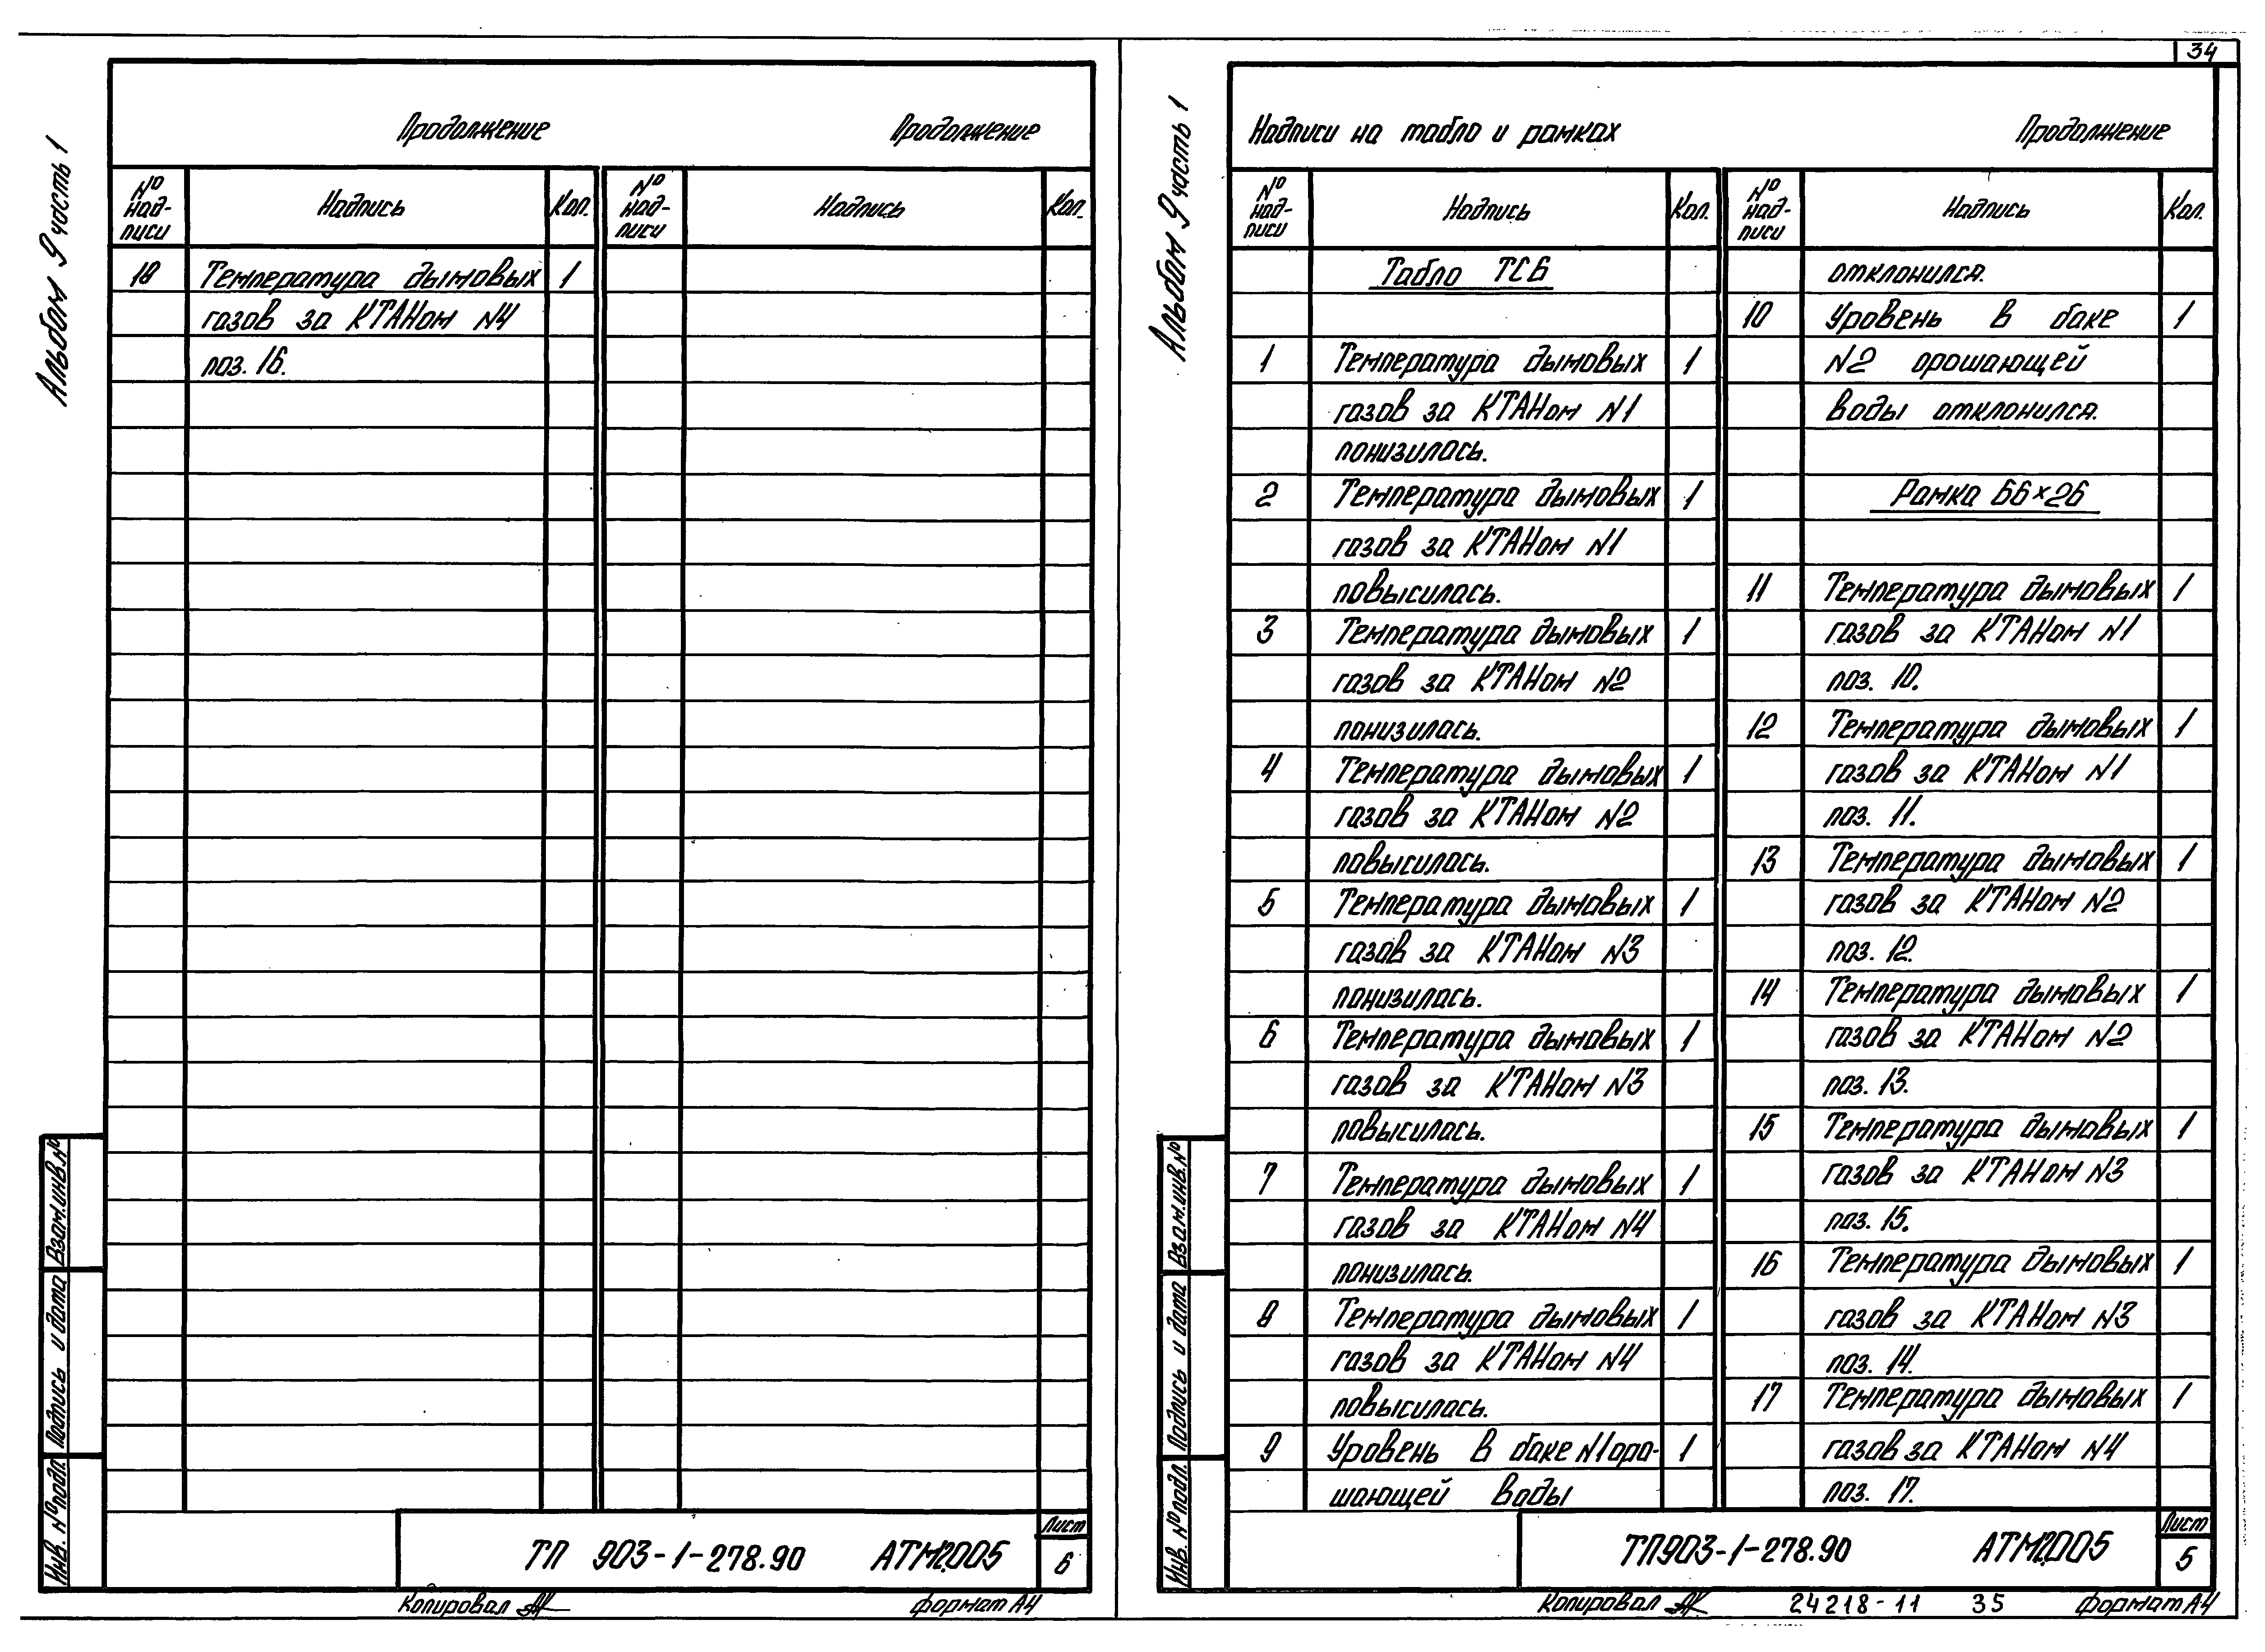 Альбом 9 часть 1
Продолжение Продолжение
№ над-писи Надпись Кол. № над-писи Надпись Кол.
18 Температура дымовых 1
газов за КТАНом N4
поз. 16.
Взам.инв.№
Подпись и дата
Инв. № подл.
ТП 903-1-278.90 АТМ2.005
Лист
6
Копировал
формат А4
34
Альбом 9 часть 1
Надписи на табло и рамках Продолжение
№ над-писи Надпись Кол. № над-писи Надпись Кол.
Табло ТСБ
1 Температура дымовых 1
газов за КТАНом N1
понизилась.
2 Температура дымовых 1
газов за КТАНом N1
повысилась.
3 Температура дымовых 1
газов за КТАНом N2
понизилась.
4 Температура дымовых 1
газов за КТАНом N2
повысилась.
5 Температура дымовых 1
газов за КТАНом N3
понизилась.
6 Температура дымовых 1
газов за КТАНом N3
повысилась.
7 Температура дымовых 1
газов за КТАНом N4
понизилась.
8 Температура дымовых 1
газов за КТАНом N4
повысилась.
9 Уровень в баке N1 оро- 1
шающей воды
отклонился.
10 Уровень в баке 1
N2 орошающей
воды отклонился.
Рамка 66×26
11 Температура дымовых 1
газов за КТАНом N1
поз. 10.
12 Температура дымовых 1
газов за КТАНом N1
поз. 11.
13 Температура дымовых 1
газов за КТАНом N2
поз. 12.
14 Температура дымовых 1
газов за КТАНом N2
поз. 13.
15 Температура дымовых 1
газов за КТАНом N3
поз. 15.
16 Температура дымовых 1
газов за КТАНом N3
поз. 14.
17 Температура дымовых 1
газов за КТАНом N4
поз. 17.
Взам.инв.№
Подпись и дата
Инв. № подл.
ТП903-1-278.90 АТМ2.005
Лист
5
Копировал 24218-11 35 формат А4